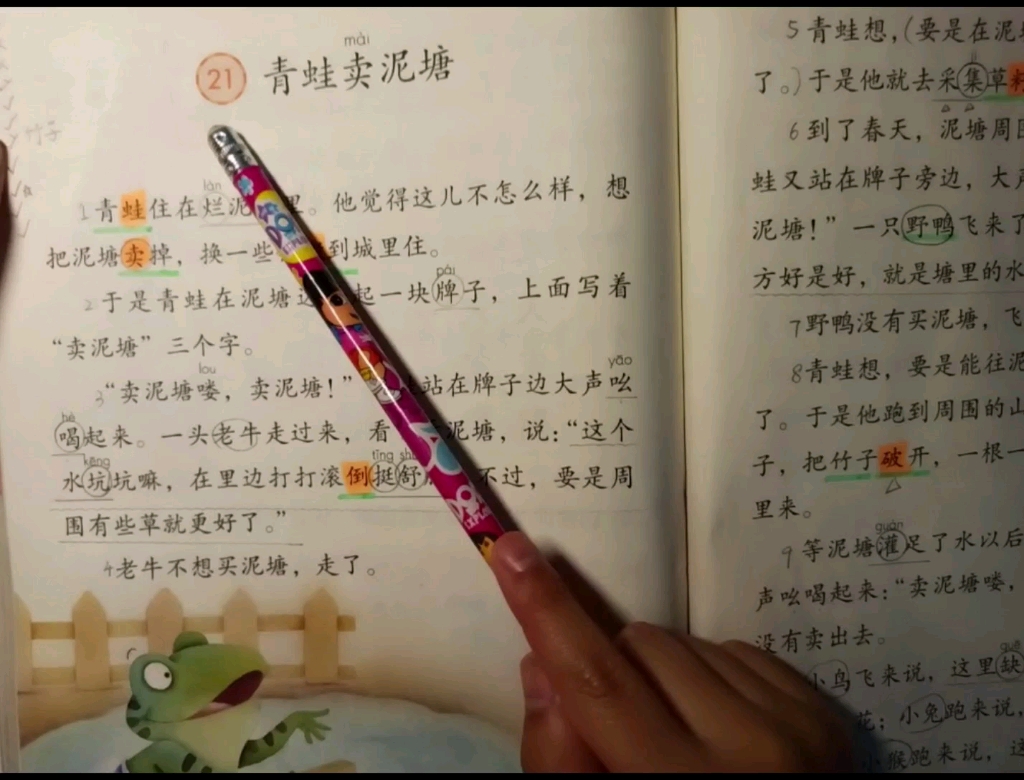 mài
21 青蛙卖泥塘
làn
1青蛙住在烂泥里。他觉得这儿不怎么样，想
把泥塘卖掉，换一些到城里住。
pái
2于是青蛙在泥塘起一块牌子，上面写着
“卖泥塘”三个字。
lou yāo
3“卖泥塘喽，卖泥塘！”站在牌子边大声吆
hè
喝起来。一头老牛走过来，看泥塘，说：“这个
kēng tǐng shū
水坑坑嘛，在里边打打滚倒挺舒不过，要是周
围有些草就更好了。”
4老牛不想买泥塘，走了。
5青蛙想，(要是在泥
了。)于是他就去采集草籽
6到了春天，泥塘周
蛙又站在牌子旁边，大声
泥塘！”一只野鸭飞来了
方好是好，就是塘里的水
7野鸭没有买泥塘，飞
8青蛙想，要是能往泥
了。于是他跑到周围的山
子，把竹子破开，一根一
里来。
guàn
9等泥塘灌足了水以后
声吆喝起来：“卖泥塘喽，
没有卖出去。
quē
小鸟飞来说，这里缺
花；小兔跑来说，
小猴跑来说，这